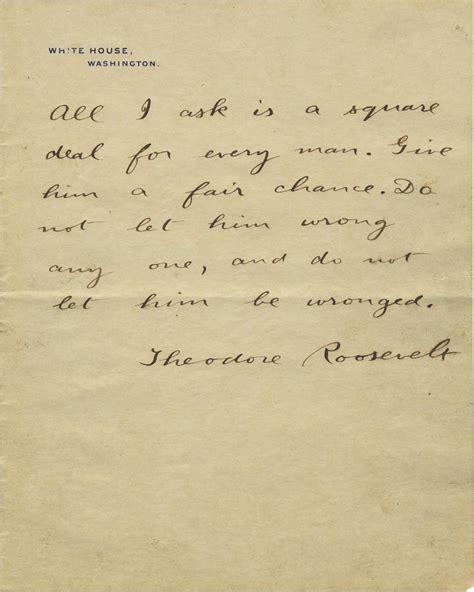 WHITE HOUSE,
WASHINGTON.
All I ask is a square
deal for every man. Give
him a fair chance. Do
not let him wrong
any one, and do not
let him be wronged.
Theodore Roosevelt